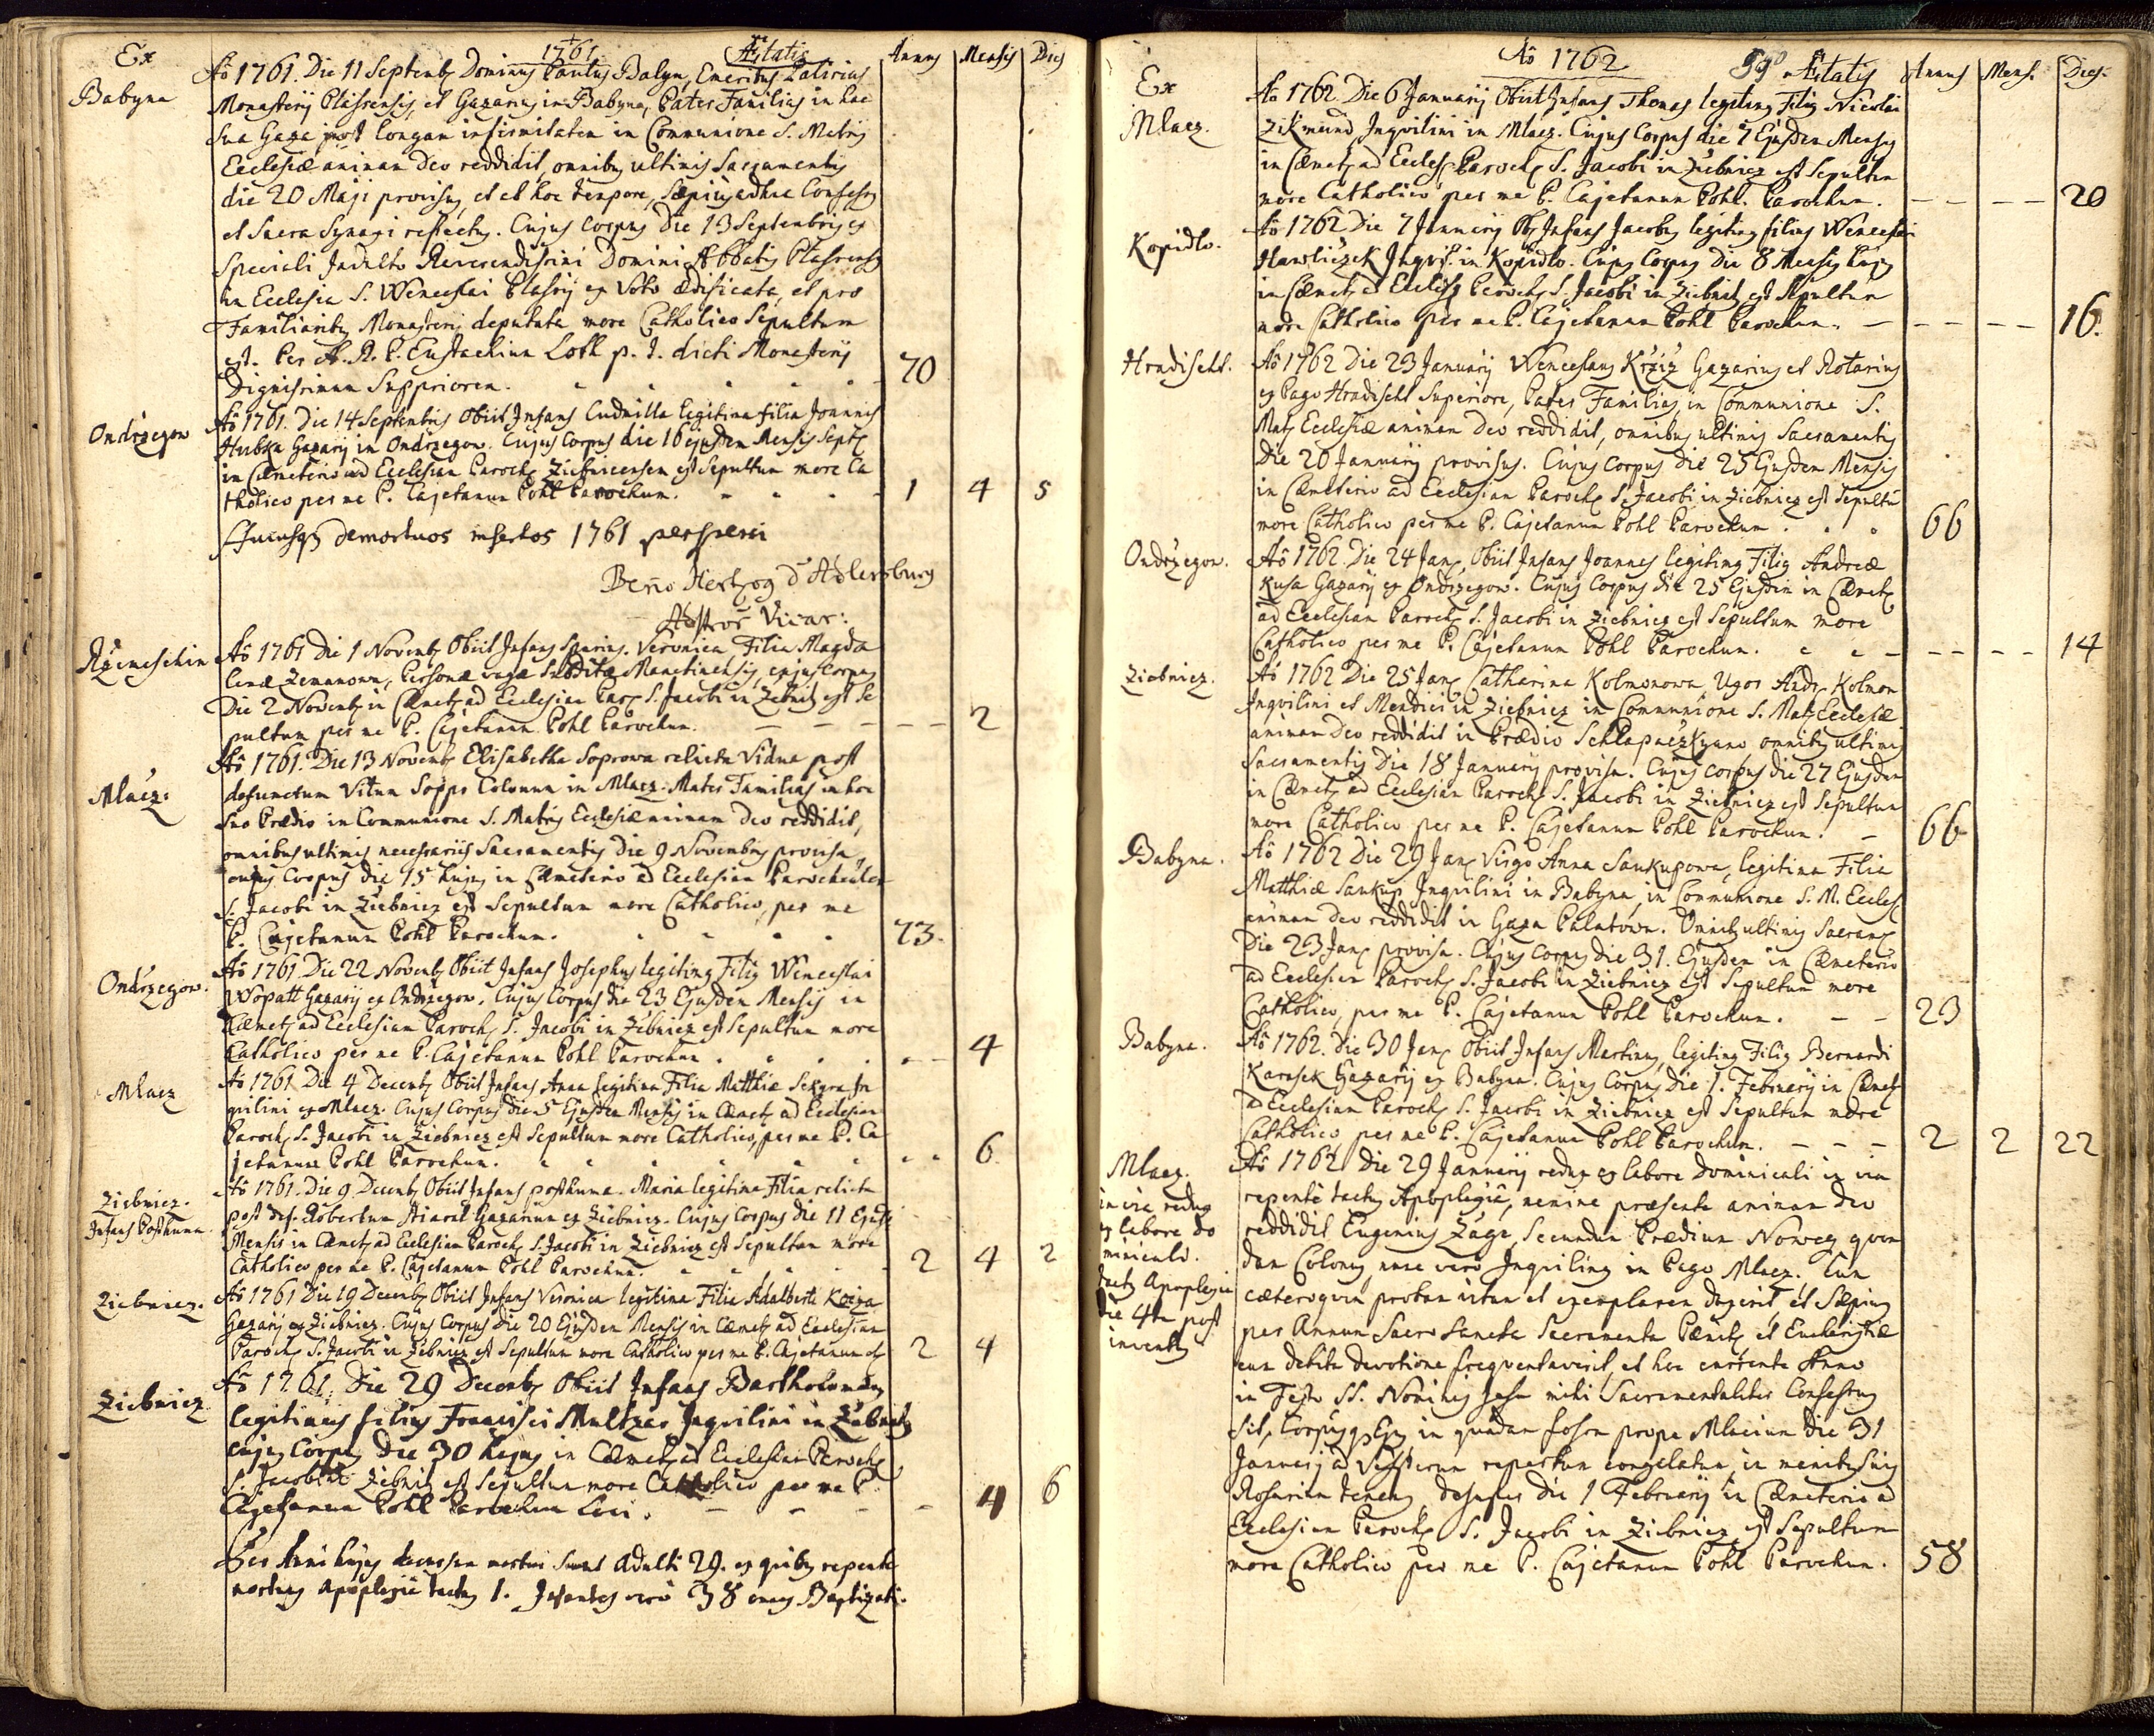 Ex
1761
Ætatis
Annus Mensis Dies
Babyna
Aõ 1761. Die 11 Septemb Dominus Paulus Balyn, Emeritus
Monasterij Plassensis, et Gazarius in Babyna, Pater Familias in hac
sua Gaza post longam infirmitatem in Communione S. Matris
Ecclesiæ animam deo reddidit, omnibus ultimis Sacramentis
die 20 Maji provisus, et hoc tempore, Sæpius adhuc Confessus
et Sacra Synaxi refectus. Cujus Corpus Die 13 Septembris ex
Speciali Indulto Reverendissimi Domini Abbatis Plassensis
in Ecclesia S. Wenceslai Plassij ex Voto ædificata, et pro
Familiaribus Monasterij deputata more Catholico Sepultum
est. Per A. R. P. Eustachium Loth p. t. dicti Monasterij
Dignissimum Suppriorem. 70
Ondrzegow
Aõ 1761. Die 14 Septembris Obiit Infans Ludmilla legitima filia Joannis
Hubka Gazarij in Ondrzegow. Cujus Corpus die 16 ejusdem Mensis Sept
in Cæmeterio ad Ecclesiam Paroch Ziebnicensem est Sepultum more Ca
tholico per me P. Cajetanum Pohl Parochum. 1 4 5
Hucusq demortuos insertos 1761 perspexi
Beno Hertzog d'Adlersburg
Vicar:
Rzemeschin
Aõ 1761 Die 1 Novemb Obiit Infans Spurius. Veronica Filia Magda
lenæ Zemanown, Personæ vagæ Subditæ Manetinensis, cujus Corpus
Die 2 Novemb in Cæmet ad Ecclesiam Par S. Jacobi in Zebnitz est Se
pultum per me P. Cajetanum Pohl Parochum. 2
Mlacz.
Aõ 1761. Die 13 Novemb Elisabetha Soprowa relicta Vidua post
defunctum Vitum Sopp Colonum in Mlacz. Mater Familias in hoc
suo Prædio in Communione S. Matris Ecclesiæ animam deo reddidit,
omnibus ultimis necessariis Sacramentis Die 9 Novembris provisa,
cujus Corpus die 15 hujus in Cæmeterio ad Ecclesiam Parochialem
S. Jacobi in Ziebnicz est Sepultum more Catholico, per me
P. Cajetanum Pohl Parochum. 73.
Ondrzegow.
Aõ 1761. Die 22 Novemb Obiit Infans Josephus legitimus Filius Wenceslai
Wopatt Gazarij ex Ondrzegow. Cujus Corpus die 23 Ejusdem Mensis in
Cæmet ad Ecclesiam Paroch S. Jacobi in Zebnicz est Sepultum more
Catholico per me P. Cajetanum Pohl Parochum. 4
Mlacz
Aõ 1761 Die 4 Decemb Obiit Infans Anna legitima Filia Matthiæ Sekyra In
quilini ex Mlacz. Cujus Corpus die 5 Ejusdem Mensis in Cæmet ad Ecclesiam
Paroch S. Jacobi in Ziebnicz est Sepultum more Catholico, per me P. Ca
jetanum Pohl Parochum. 6
Ziebnicz.
Infans Posthuma.
Aõ 1761. Die 9 Decemb Obiit Infans posthuma. Maria legitima Filia relicta
post def. Robertum Gazarium ex Ziebnicz. Cujus Corpus die 11 Ejusd
Mensis in Cæmet ad Ecclesiam Paroch S. Jacobi in Ziebnicz est Sepultum more
Catholico per me P. Cajetanum Pohl Parochum. 2 4 2
Ziebnicz.
Aõ 1761 Die 19 Decemb Obiit Infans Veronica legitima Filia Adalberti
Gazarij ex Ziebnicz. Cujus Corpus die 20 Ejusdem Mensis in Cæmet ad Ecclesiam
Paroch S. Jacobi in Zebnicz est Sepultum more Catholico per me P. Cajetanum 2 4
Ziebnicz
Aõ 1761. Die 29 Decemb Obiit Infans Bartholomæus
legitimus filius Francisci Multzer Inquilini in Zebnitz
cujus Corpus Die 30 hujus in Cæmet ad Ecclesiam Paroch
S. Jacobi Zebnitz est Sepultum more Catholico per me P.
Cajetanum Pohl Parochum Loci. 4 6
hujus decursum mortui Sunt Adulti 29. ex quibus repente
mortuus Apoplexiæ tactus 1. Infantes vero 38 omnes Baptizati.
Ex
Aõ 1762
Ætatis
Annus Mens. Dies.
Mlacz.
Aõ 1762. Die 6 Januarij Obiit Infans Thomas legitimus Filius Nicolai
Zikmund Inquilini in Mlacz. Cujus Corpus die 7 Ejusdem Mensis
in Cæmet ad Eccles Paroch S. Jacobi in Ziebnicz est Sepultum
more Catholico per me P. Cajetanum Pohl. Parochum. 20
Kopidlo.
Aõ 1762 Die 7 Januarij Ob Infans Jacobus legitimus filius Wenceslai
Hawliczek Inqvil. in Kopidlo. Cujus Corpus Die 8 Mensis hujus
in Cæmet ad Ecclesi Paroch S. Jacobi in Ziebnitz est Sepultum
more Catholico per me P. Cajetanum Pohl Parochum. 16.
Hradischt.
Aõ 1762 Die 23 Januarij Wenceslaus Krziz Gazarius et Rotarius
ex Pago Hradischt Superiore, Pater Familias, in Communione S.
Mat Ecclesiæ animam Deo reddidit, omnibus ultimis Sacramentis
Die 20 Januarij provisus. Cujus Corpus Die 25 Ejusdem Mensis
in Cæmeterio ad Ecclesiam Paroch S. Jacobi in Ziebnicz est Sepultu
more Catholico per me P. Cajetanum Pohl Parochum. 66
Ondrzegow.
Aõ 1762. Die 24 Jan, Obiit Infans Joannes legitimus Filius Andreæ
Kusa Gazarij ex Ondrzegow. Cujus Corpus die 25 Ejusdem in Cæmet
ad Ecclesiam Paroch S. Jacobi in Ziebnicz est Sepultum more
Catholico per me P. Cajetanum Pohl Parochum. 14
Ziebnicz.
Aõ 1762 Die 25 Jan Catharina Kolmonowa, Uxor Andr Kolmon
Inquilini et Mendici in Ziebnicz in Communione S. Mat Ecclesiæ
animam deo reddidit in Prædio omnibus ultimis
Sacramentis Die 18 Januarij provisa. Cujus Corpus die 27 Ejusdem
in Cæmet ad Ecclesiam Paroch S. Jacobi in Ziebnicz est Sepultum
more Catholico per me P. Cajetanum Pohl Parochum. 66
Babyna.
Aõ 1762 Die 29 Jan Virgo Anna Saukupowa, legitima Filia
Matthiæ Saukup Inquilini in Babyna, in Communione S. M. Eccles
animam deo reddidit in Gaza Palatown. Omnib ultimis Sacram
Die 23 Jan provisa. Cujus Corpus die 31. Ejusdem in Cæmeterio
ad Ecclesiam Paroch S. Jacobi in Ziebnicz est Sepultum more
Catholico, per me P. Cajetanum Pohl Parochum. 23
Babyna.
Aõ 1762. Die 30 Jan Obiit Infans Martinus, legitimus Filius Bernardi
Karasek Gazarij ex Babyna. Cujus Corpus die 1. Februarij in Cæmet
ad Ecclesiam Paroch S. Jacobi in Ziebnicz est Sepultum more
Catholico per me P. Cajetanum Pohl Parochum. 2 2 22
Mlacz.
in via redux
ex labore do
minicali.
tactus Apoplexia
die 4ta post
inventus
Aõ 1762 Die 29 Januarij redux ex labore dominicali in via
repente tactus Apoplexiâ, nemine præsente animam deo
reddidit Eugenius Zage, Secundum Prædium Nowey quon
dam Colonus nunc vero Inquilinus in Pago Mlacz. Cum
cæteroquin probam vitam et exemplarem duxerit, et Sæpius
per Annum Sacro Sancta Sacramenta Pænit et Eucharistiæ
cum debita devotione frequentaverit, et hoc currente Anno
in Festo SS. Nominis Jesu mihi Sacramentaliter Confessus
sit, Corpusq Ejus in quadam fossa prope Mlacium Die 31
Januarij ad Vesperum repertum congelatum, in manibus suis
Rosarium tenens, Die 1 Februarij in Cæmeterio ad
Ecclesiam Paroch S. Jacobi in Ziebnicz est Sepultum
more Catholico per me P. Cajetanum Pohl Parochum. 58